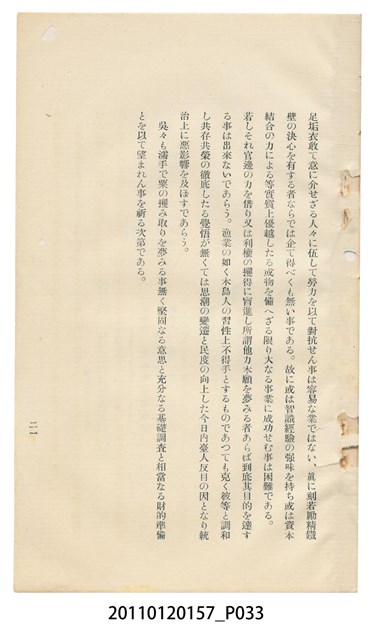 足垢衣敢て意に介せざる人々に伍して勞力を以て對抗せん事は容易な業ではない、眞に刻苦勵精鐵
壁の決心を有する者ならでは企て得べくも無い事である。故に或は智識經驗の强味を持ち或は資本
結合の力による等實質上優越したる或物を備へざる限り大なる事業に成功せむ事は困難である。
若しそれ官邊の力を借り又は利權の獲得に盲進し所謂他力本願を夢みる者あらば到底其目的を達す
る事は出來ないであらう。漁業の如く本島人の習性上不得手とするものであつても克く彼等と調和
し共存共榮の徹底したる覺悟が無くては思潮の變遷と民度の向上した今日内臺人反目の因となり統
治上に惡影響を及ほすであらう。
吳々も濡手で粟の摑み取りを夢みる事無く堅固なる意思と充分なる基礎調査と相當なる財的準備
とを以て望まれん事を祈る次第である。
二一
20110120157_P033